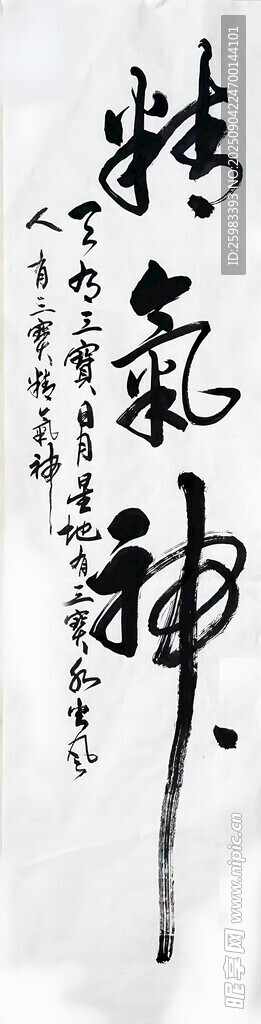 精氣神
天有三寶日月星地有三寶水火風
人有三寶精氣神
ID:25983393NO:20250904224700144101
昵享网 www.nipic.cn